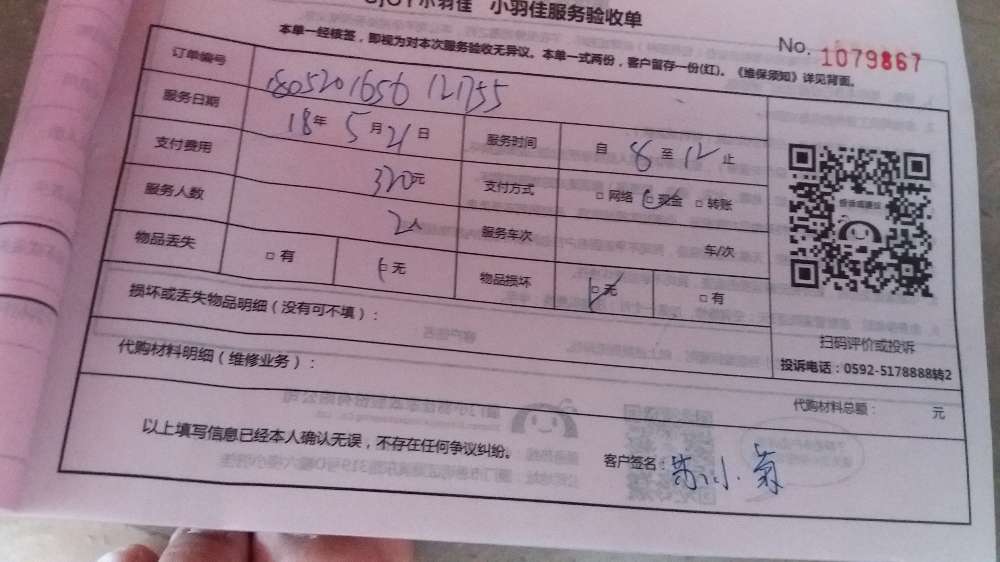 小羽佳 小羽佳服务验收单
No. 1079867
本单一经核签，即视为对本次服务验收无异议。本单一式两份，客户留存一份(红)。《维保须知》详见背面。
订单编号 180520165612 1755
服务日期 18年 5月21日 服务时间 自 8 至 12 止
支付费用 320元 支付方式 □网络 □现金 □转账
服务人数 2人 服务车次 车/次
物品丢失 □有 □无 物品损坏 □无 □有
损坏或丢失物品明细（没有可不填）：
扫码评价或投诉
投诉电话：0592-5178888转2
代购材料明细（维修业务）：
代购材料总额： 元
以上填写信息已经本人确认无误，不存在任何争议纠纷。
客户签名：小菊